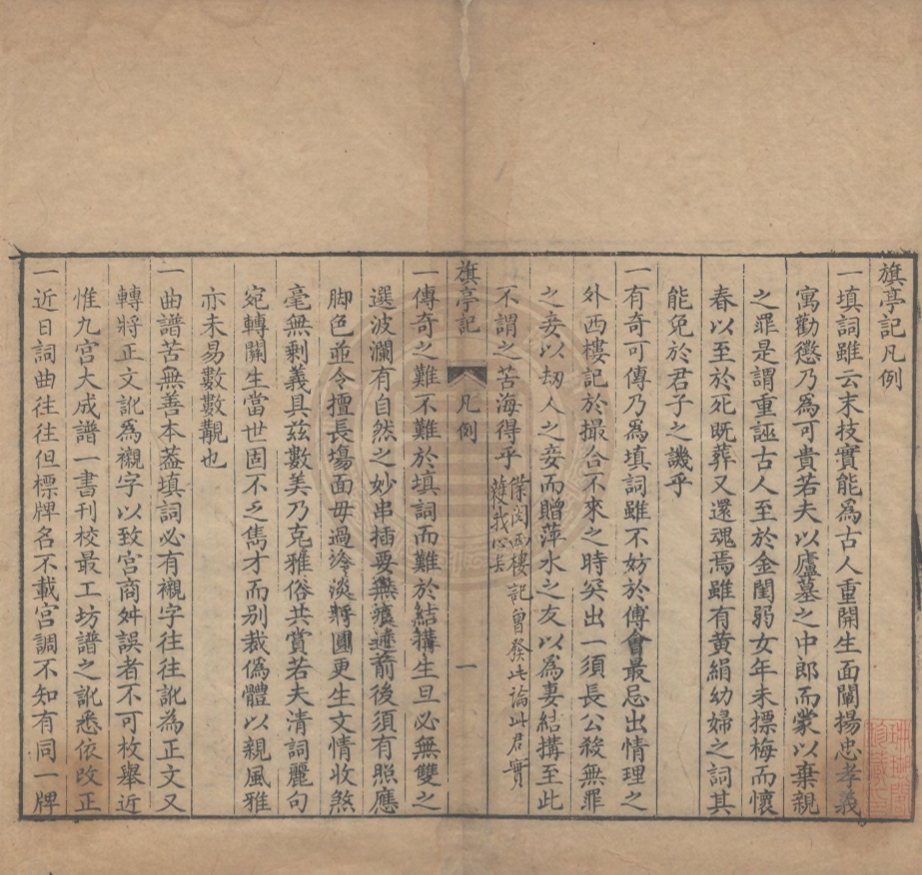 旗亭記凡例
一填詞雖云末技實能為古人重開生面闡揚忠孝義
寓勸懲乃為可貴若夫以廬墓之中郎而蒙以棄親
之罪是謂重誣古人至於金閨弱女年未摽梅而懷
春以至於死既葬又還魂焉雖有黃絹幼婦之詞其
能免於君子之譏乎
一有奇可傳乃為填詞雖不妨於傅會最忌出情理之
外西樓記於撮合不來之時突出一須長公殺無罪
之妾以刼人之妾而贈萍水之友以為妻結搆至此
不謂之苦海得乎
閱西樓記曾發此論此君實
獲我心矣
旗亭記
凡例
一
一傳奇之難不難於填詞而難於結搆生旦必無雙之
選波瀾有自然之妙串插要無痕迹前後須有照應
脚色並令擅長塲面毋過冷淡將圓更生文情收煞
毫無剩義具茲數美乃克雅俗共賞若夫清詞麗句
宛轉關生當世固不乏雋才而别裁偽體以親風雅
亦未易數數覯也
一曲譜苦無善本葢填詞必有襯字往往訛為正文又
轉將正文訛為襯字以致宫商舛誤者不可枚舉近
惟九宫大成譜一書刊校最工坊譜之訛悉依改正
一近日詞曲往往但標牌名不載宫調不知有同一牌